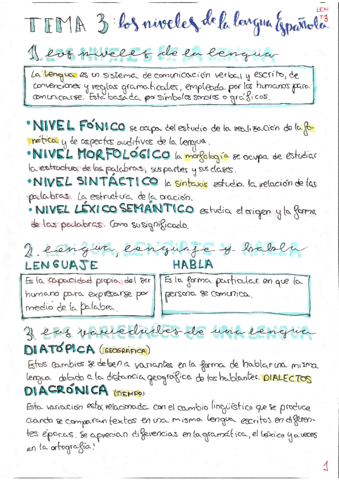 LEN
T3
TEMA 3: los niveles de la lengua Española
1) los niveles de la lengua
La lengua es un sistema de comunicación verbal y escrito, de
convenciones y reglas gramaticales, empleada por los humanos para
comunicarse. Está basada por símbolos sonoros o gráficos.
• NIVEL FÓNICO se ocupa del estudio de la realización de la fo-
nética y de aspectos auditivos de la lengua.
• NIVEL MORFOLÓGICO la morfología se ocupa de estudiar
la estructura de las palabras, sus partes y sus clases.
• NIVEL SINTÁCTICO la sintaxis estudia la relación de las
palabras. La estructura de la oración.
• NIVEL LÉXICO SEMÁNTICO estudia el origen y la forma
de las palabras. Como su significado.
2. Lengua, lenguaje y habla
LENGUAJE HABLA
Es la capacidad propia del ser
humano para expresarse por
medio de la palabra.
Es la forma particular en que la
persona se comunica.
3) Las variedades de una lengua
DIATÓPICA (GEOGRÁFICA)
Estos cambios se deben a variantes en la forma de hablar una misma
lengua debido a la distancia geográfica de los hablantes. DIALECTOS
DIACRÓNICA (TIEMPO)
Esta variación está relacionada con el cambio lingüístico que se produce
cuando se comparan textos en una misma lengua escritos en diferen-
tes épocas. Se aprecian diferencias en la gramática, el léxico y a veces
en la ortografía.
1